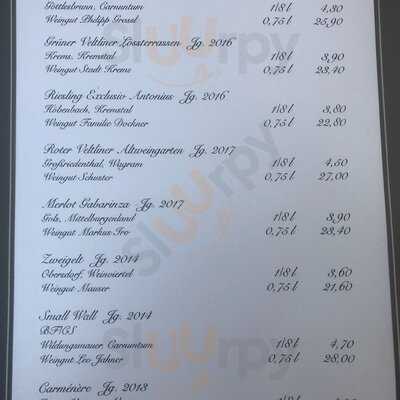 Göttlesbrunn, Carnuntum 1/8 l 4,30
Weingut Philipp Grassl 0,75 l 25,90
Grüner Veltliner Lössterrassen Jg. 2016
Krems, Kremstal 1/8 l 3,90
Weingut Stadt Krems 0,75 l 23,40
Riesling Exclusiv Antonius Jg. 2016
Höbenbach, Kremstal 1/8 l 3,80
Weingut Familie Dockner 0,75 l 22,80
Roter Veltliner Altweingarten Jg. 2017
Großriedenthal, Wagram 1/8 l 4,50
Weingut Schuster 0,75 l 27,00
Merlot Gabarinza Jg. 2017
Gols, Mittelburgenland 1/8 l 3,90
Weingut Markus Iro 0,75 l 23,40
Zweigelt Jg. 2014
Obersdorf, Weinviertel 1/8 l 3,60
Weingut Mauser 0,75 l 21,60
Small Wall Jg. 2014
BF/CS
Wildungsmauer, Carnuntum 1/8 l 4,70
Weingut Leo Jahner 0,75 l 28,00
Carménère Jg. 2013
Sluurpy
Sluurpy
Sluurpy